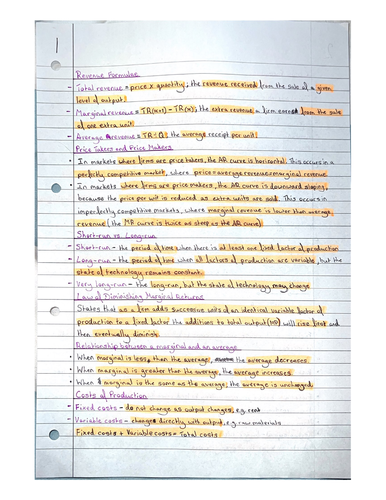 1
Revenue Formulas
- Total revenue = price x quantity; the revenue received from the sale of a given
level of output.
- Marginal revenue = TR(n+1) - TR(n); the extra revenue a firm earns from the sale
of one extra unit.
- Average revenue = TR ÷ Q; the average receipt per unit.
Price Takers and Price Makers
• In markets where firms are price takers, the AR curve is horizontal. This occurs in a
perfectly competitive market, where price = average revenue = marginal revenue.
• In markets where firms are price makers, the AR curve is downward sloping,
because the price per unit is reduced as extra units are sold. This occurs in
imperfectly competitive markets, where marginal revenue is lower than average
revenue (the MR curve is twice as steep as the AR curve).
Short-run vs Long-run
- Short-run - the period of time when there is at least one fixed factor of production
- Long-run - the period of time when all factors of production are variable, but the
state of technology remains constant.
- Very long-run - the long-run, but the state of technology may change
Law of Diminishing Marginal Returns
- States that as a firm adds successive units of an identical variable factor of
production to a fixed factor the additions to total output (MP) will rise first and
then eventually diminish.
Relationship between a marginal and an average
• When marginal is less than the average, the average decreases.
• When marginal is greater than the average, the average increases.
• When marginal is the same as the average, the average is unchanged
Costs of Production
- Fixed costs - do not change as output changes, e.g. rent
- Variable costs - change directly with output, e.g. raw materials
Fixed costs + Variable costs = Total costs